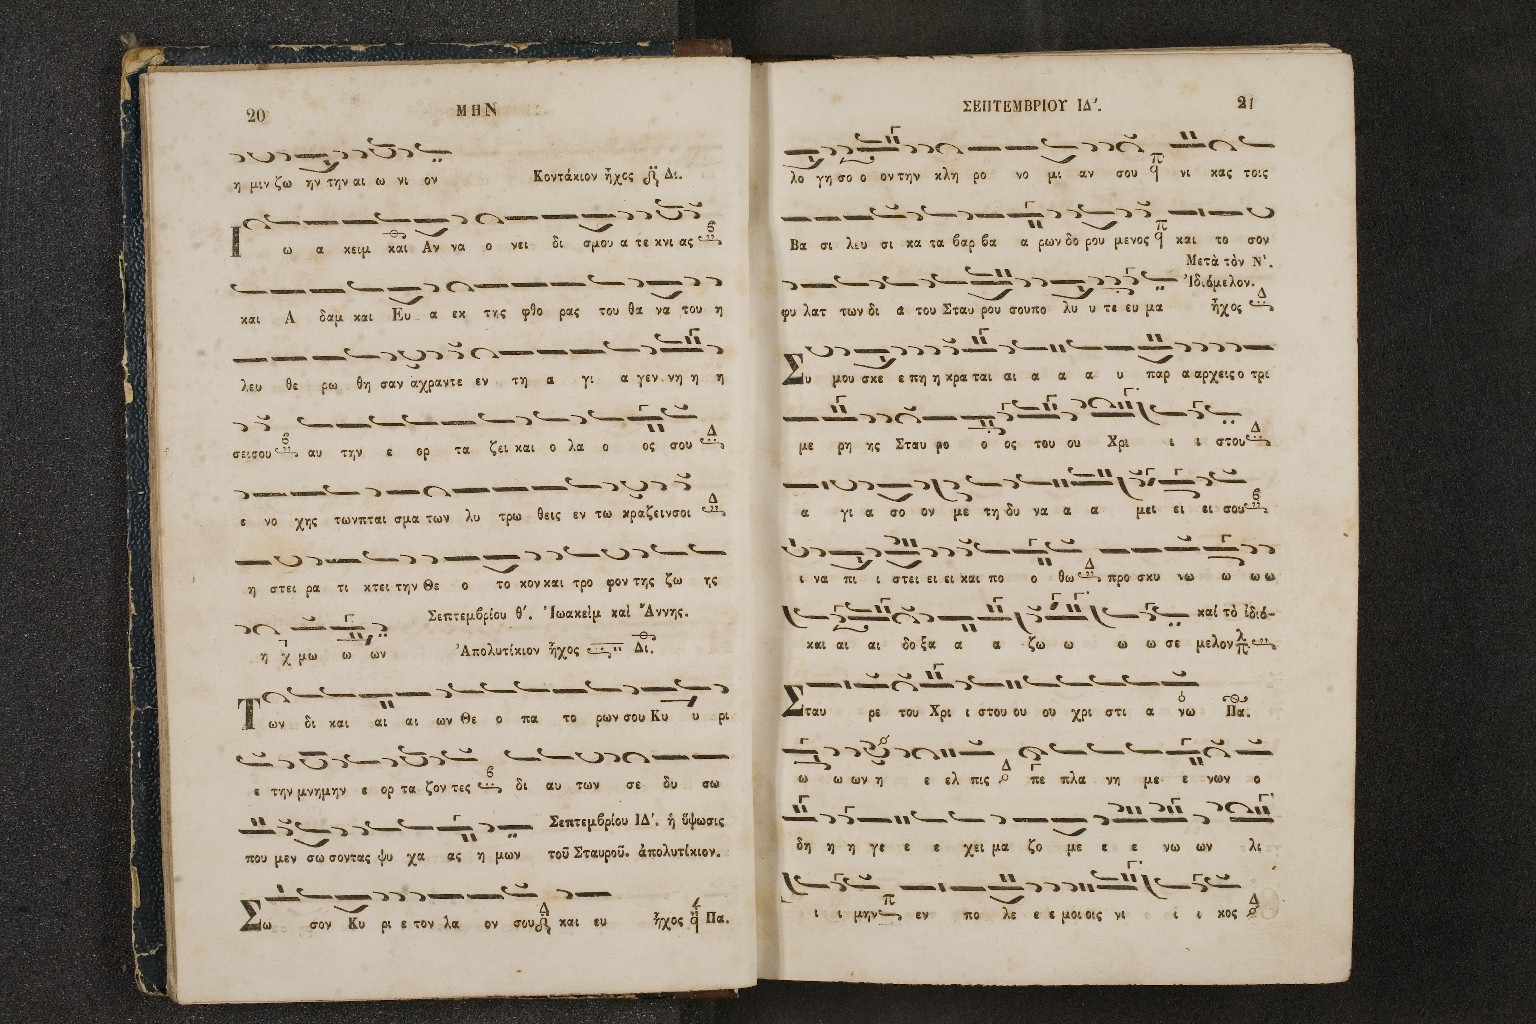 20 ΜΗΝ
η μιν ζω ην την αι ω νι ον Κοντάκιον ἦχος Δι.
Ι ω α κειμ και Αν να ο νει δι σμου α τε κνι ας
και Α δαμ και Ευ α εκ της φθο ρας του θα να του η
λευ θε ρω θη σαν αχραντε εν τη α γι α γεν νη η η
σεισου αυ την ε ορ τα ζει και ο λα ο ος σου
ε νο χης τωνπται σμα των λυ τρω θεις εν τω κραζεινσοι
η στει ρα τι κτει την Θε ο το κον και τρο φον της ζω ης
Σεπτεμβρίου θ΄. Ἰωακεὶμ καὶ Ἄννης.
η μω ω ων Ἀπολυτίκιον ἦχος Δι.
Τ ων δι και αι αι ων Θε ο πα το ρων σου Κυ υ ρι
ε την μνημην ε ορ τα ζον τες δι αυ των σε δυ σω
Σεπτεμβρίου ΙΔ΄. ἡ ὕψωσις
που μεν σω σοντας ψυ χα ας η μων τοῦ Σταυροῦ. ἀπολυτίκιον.
Σω σον Κυ ρι ε τον λα ον σου και ευ ἦχος Πα.
ΣΕΠΤΕΜΒΡΙΟΥ ΙΔ΄. 21
λο γη σο ο ον την κλη ρο νο μι αν σου νι κας τοις
Βα σι λευ σι κα τα βαρ βα α ρων δο ρου μενος και το σον
Μετὰ τὸν Ν΄.
Ἰδιόμελον.
φυ λατ των δι α του Σταυ ρου σουπο λυ υ τε ευ μα ἦχος
Συ μου σκε ε πη η κρα ται αι α α α υ παρ α αρχεις ο τρι
με ρη ης Σταυ ρο ο ος του ου Χρι ι ι στου
α γι α σο ον με τη δυ να α α μει ει ει σου
ι να πι ι στει ει ει και πο ο θω προ σκυ νω ω ω ω
καὶ τὸ ἰδιό-
και αι αι δο ξα α α ζω ω ω ω σε μελον
Σταυ ρε του Χρι ι στου ου ου χρι στι α νω Πα.
ω ω ων η ε ελ πις πε πλα νη με ε νων ο
δη η η γε ε ε χει μα ζο με ε ε νω ων λι
ι ι μην εν πο λε ε ε μοι οις νι ι ι κος